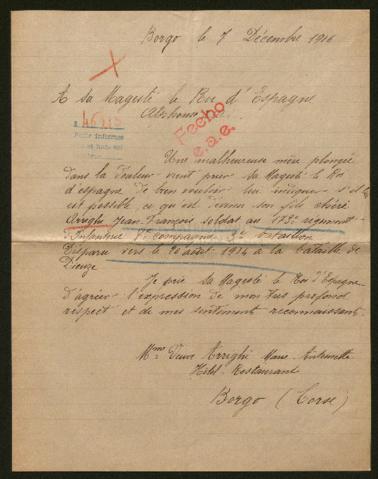 Borgo le 7 Décembre 1916
A sa Magesté le Roi d'Espagne
Alphonse
46,115
Fecho
e.a.e.
Une malheureuse mère plongée
dans la douleur vient prier sa Magesté le Roi
d'espagne de bien vouloir lui indiquer s'il
est possible ce qu'est devenu son fils chéri
Arrighi Jean-François soldat au 173e régiment
d'Infanterie compagnie 3e bataillon
Disparu vers le 20 août 1914 à la bataille de
Dieuze
Je prie sa Magesté le Roi d'Espagne
D'agréer l'expression de mon plus profond
respect et de mes sentiments reconnaissants.
Mme Veuve Arrighi Marie Antoinette
Hôtel Restaurant
Borgo (Corse)